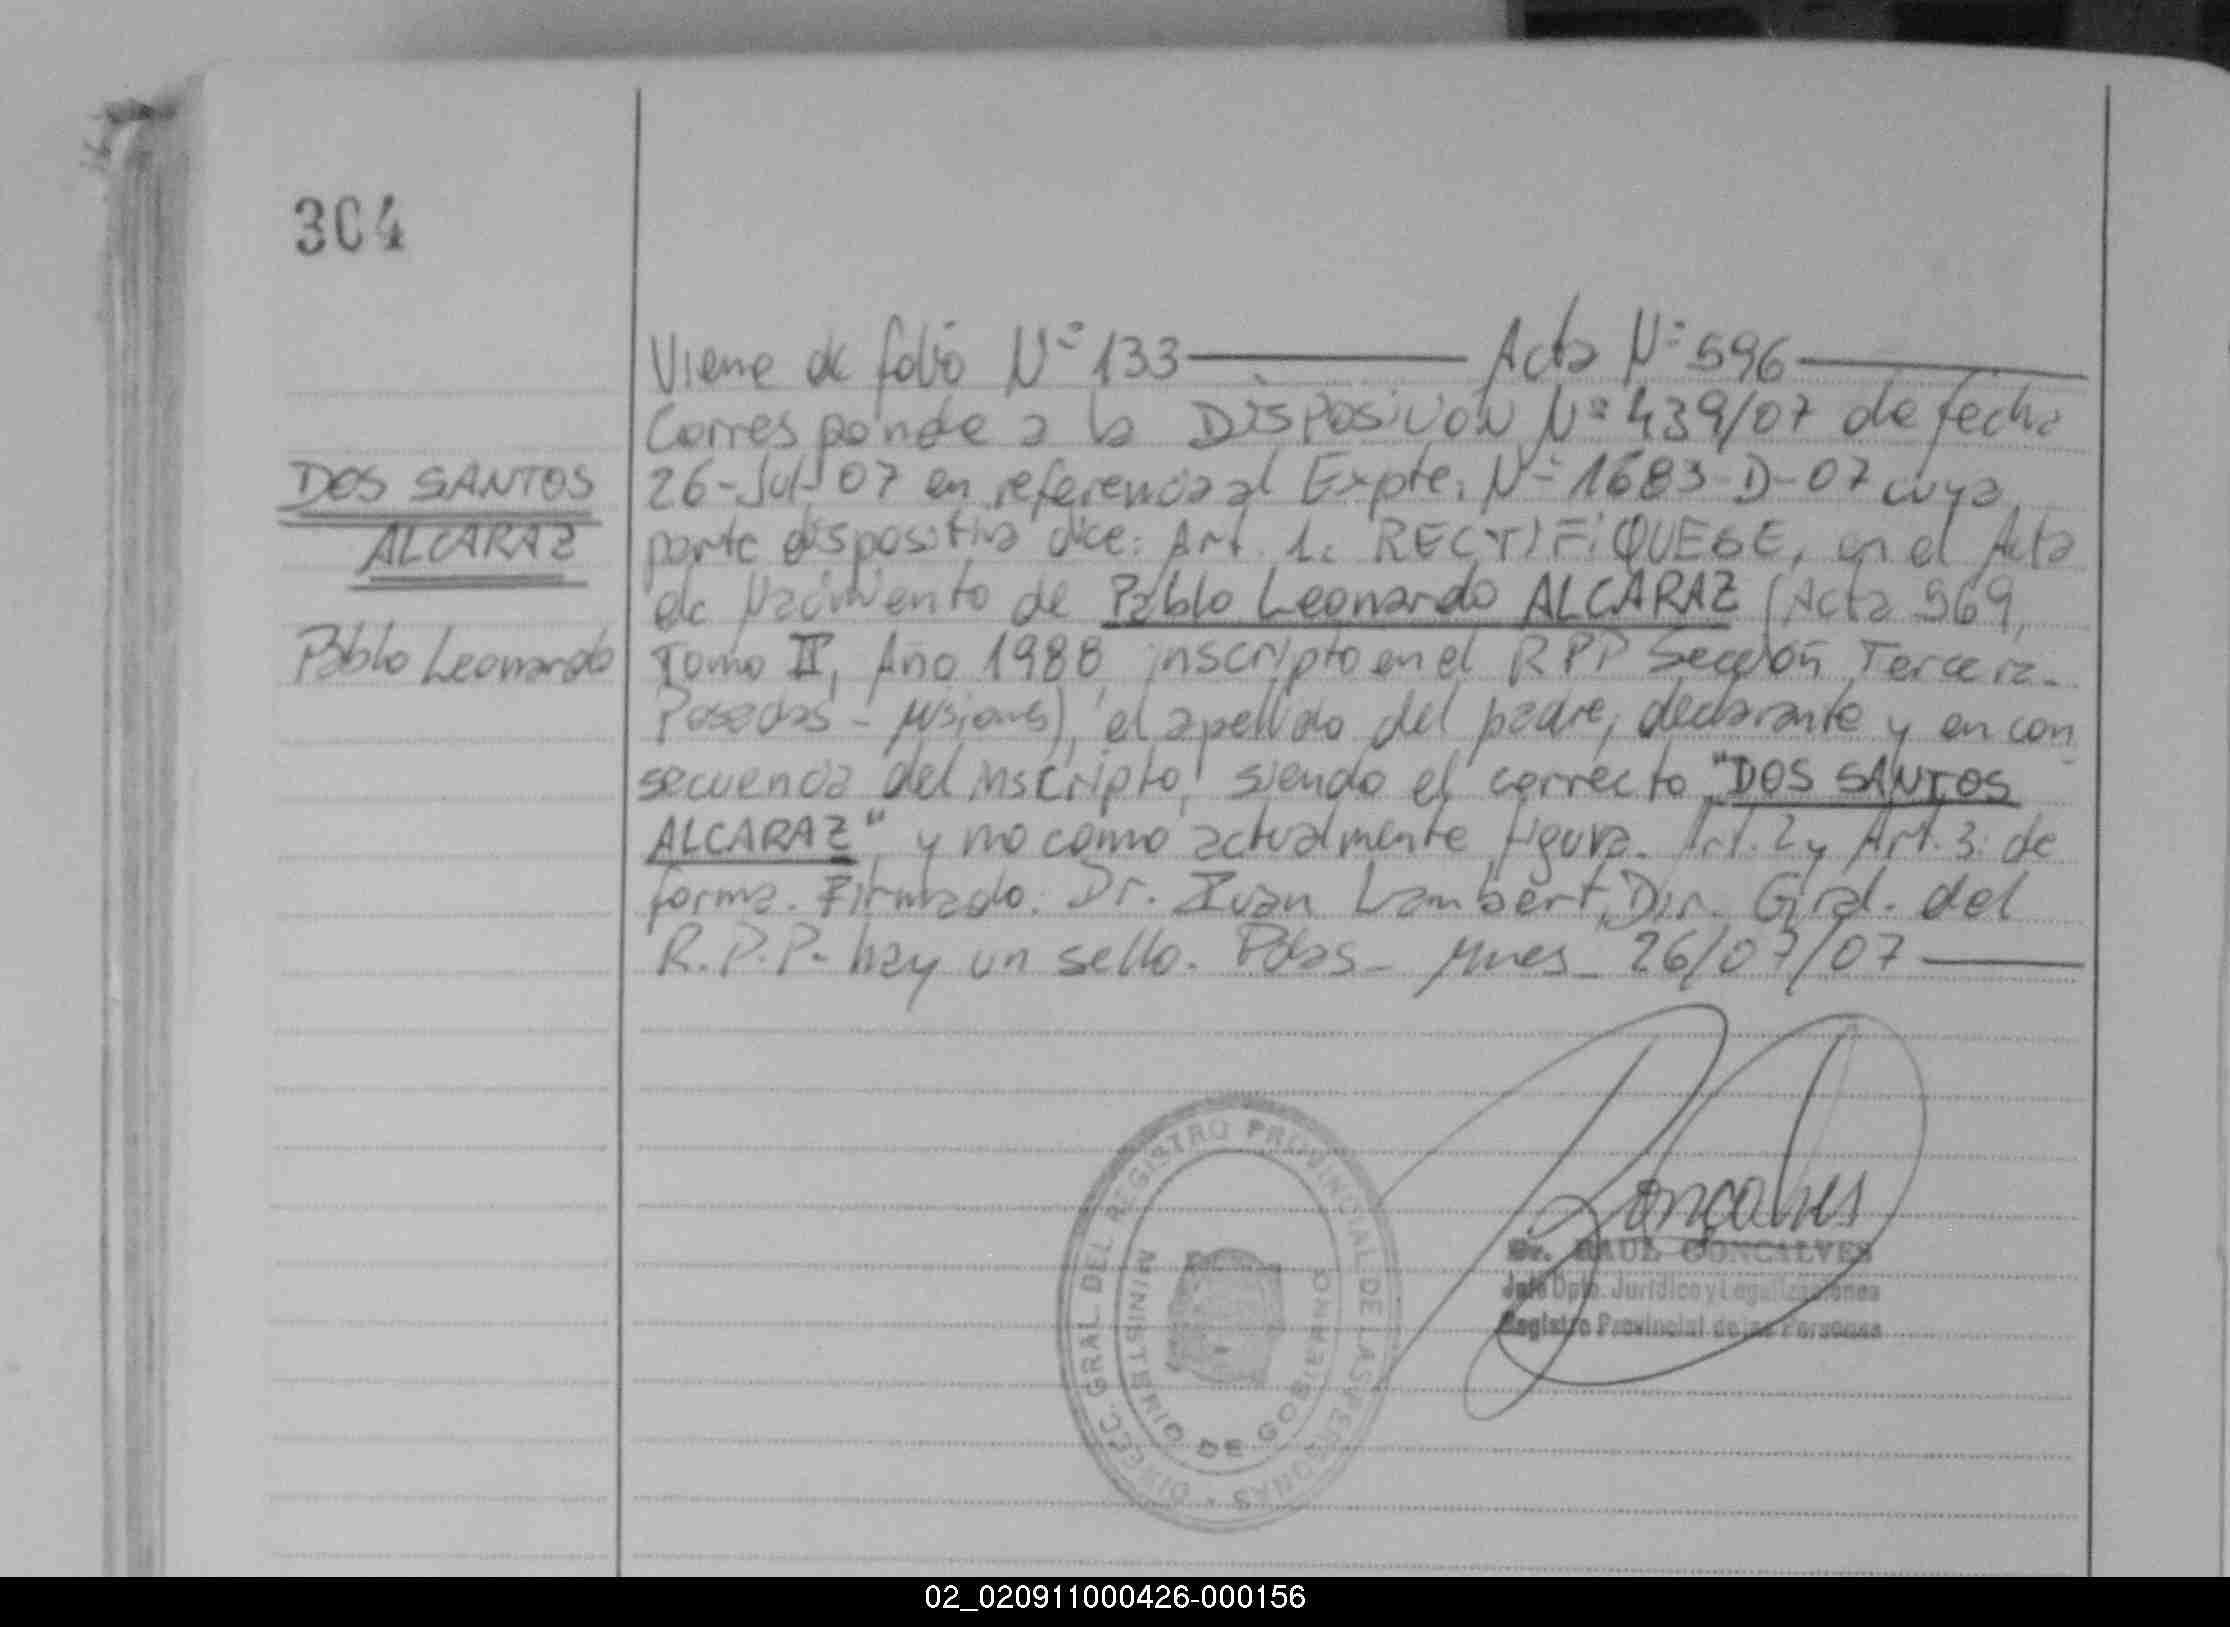 304
Viene de folio Nº 133 ———— Acta Nº 596 ————
Corresponde a la DISPOSICIÓN Nº 439/07 de fecha
DOS SANTOS
26-Jul-07 en referencia al Expte. Nº 1683-D-07 cuya
ALCARAZ
parte dispositiva dice: Art. 1. RECTIFIQUESE, en el Acta
de Nacimiento de Pablo Leonardo ALCARAZ (Acta 969,
Pablo Leonardo
Tomo II, Año 1988, inscripto en el RPP Sección Tercera-
Posadas - Misiones), el apellido del padre, declarante y en con
secuencia del inscripto, siendo el correcto "DOS SANTOS
ALCARAZ" y no como actualmente figura. Art. 2 y Art. 3: de
forma. Firmado. Dr. Ivan Lambert, Dir. Gral. del
R.P.P. hay un sello. Pdas - Mnes - 26/07/07 ———
DIREC. GRAL. DEL REGISTRO PROVINCIAL DE LAS PERSONAS
MINISTERIO DE GOBIERNO
Gonçalves
Dr. RAUL GONCALVES
Jefe Dpto. Jurídico y Legalizaciones
Registro Provincial de las Personas
02_020911000426-000156